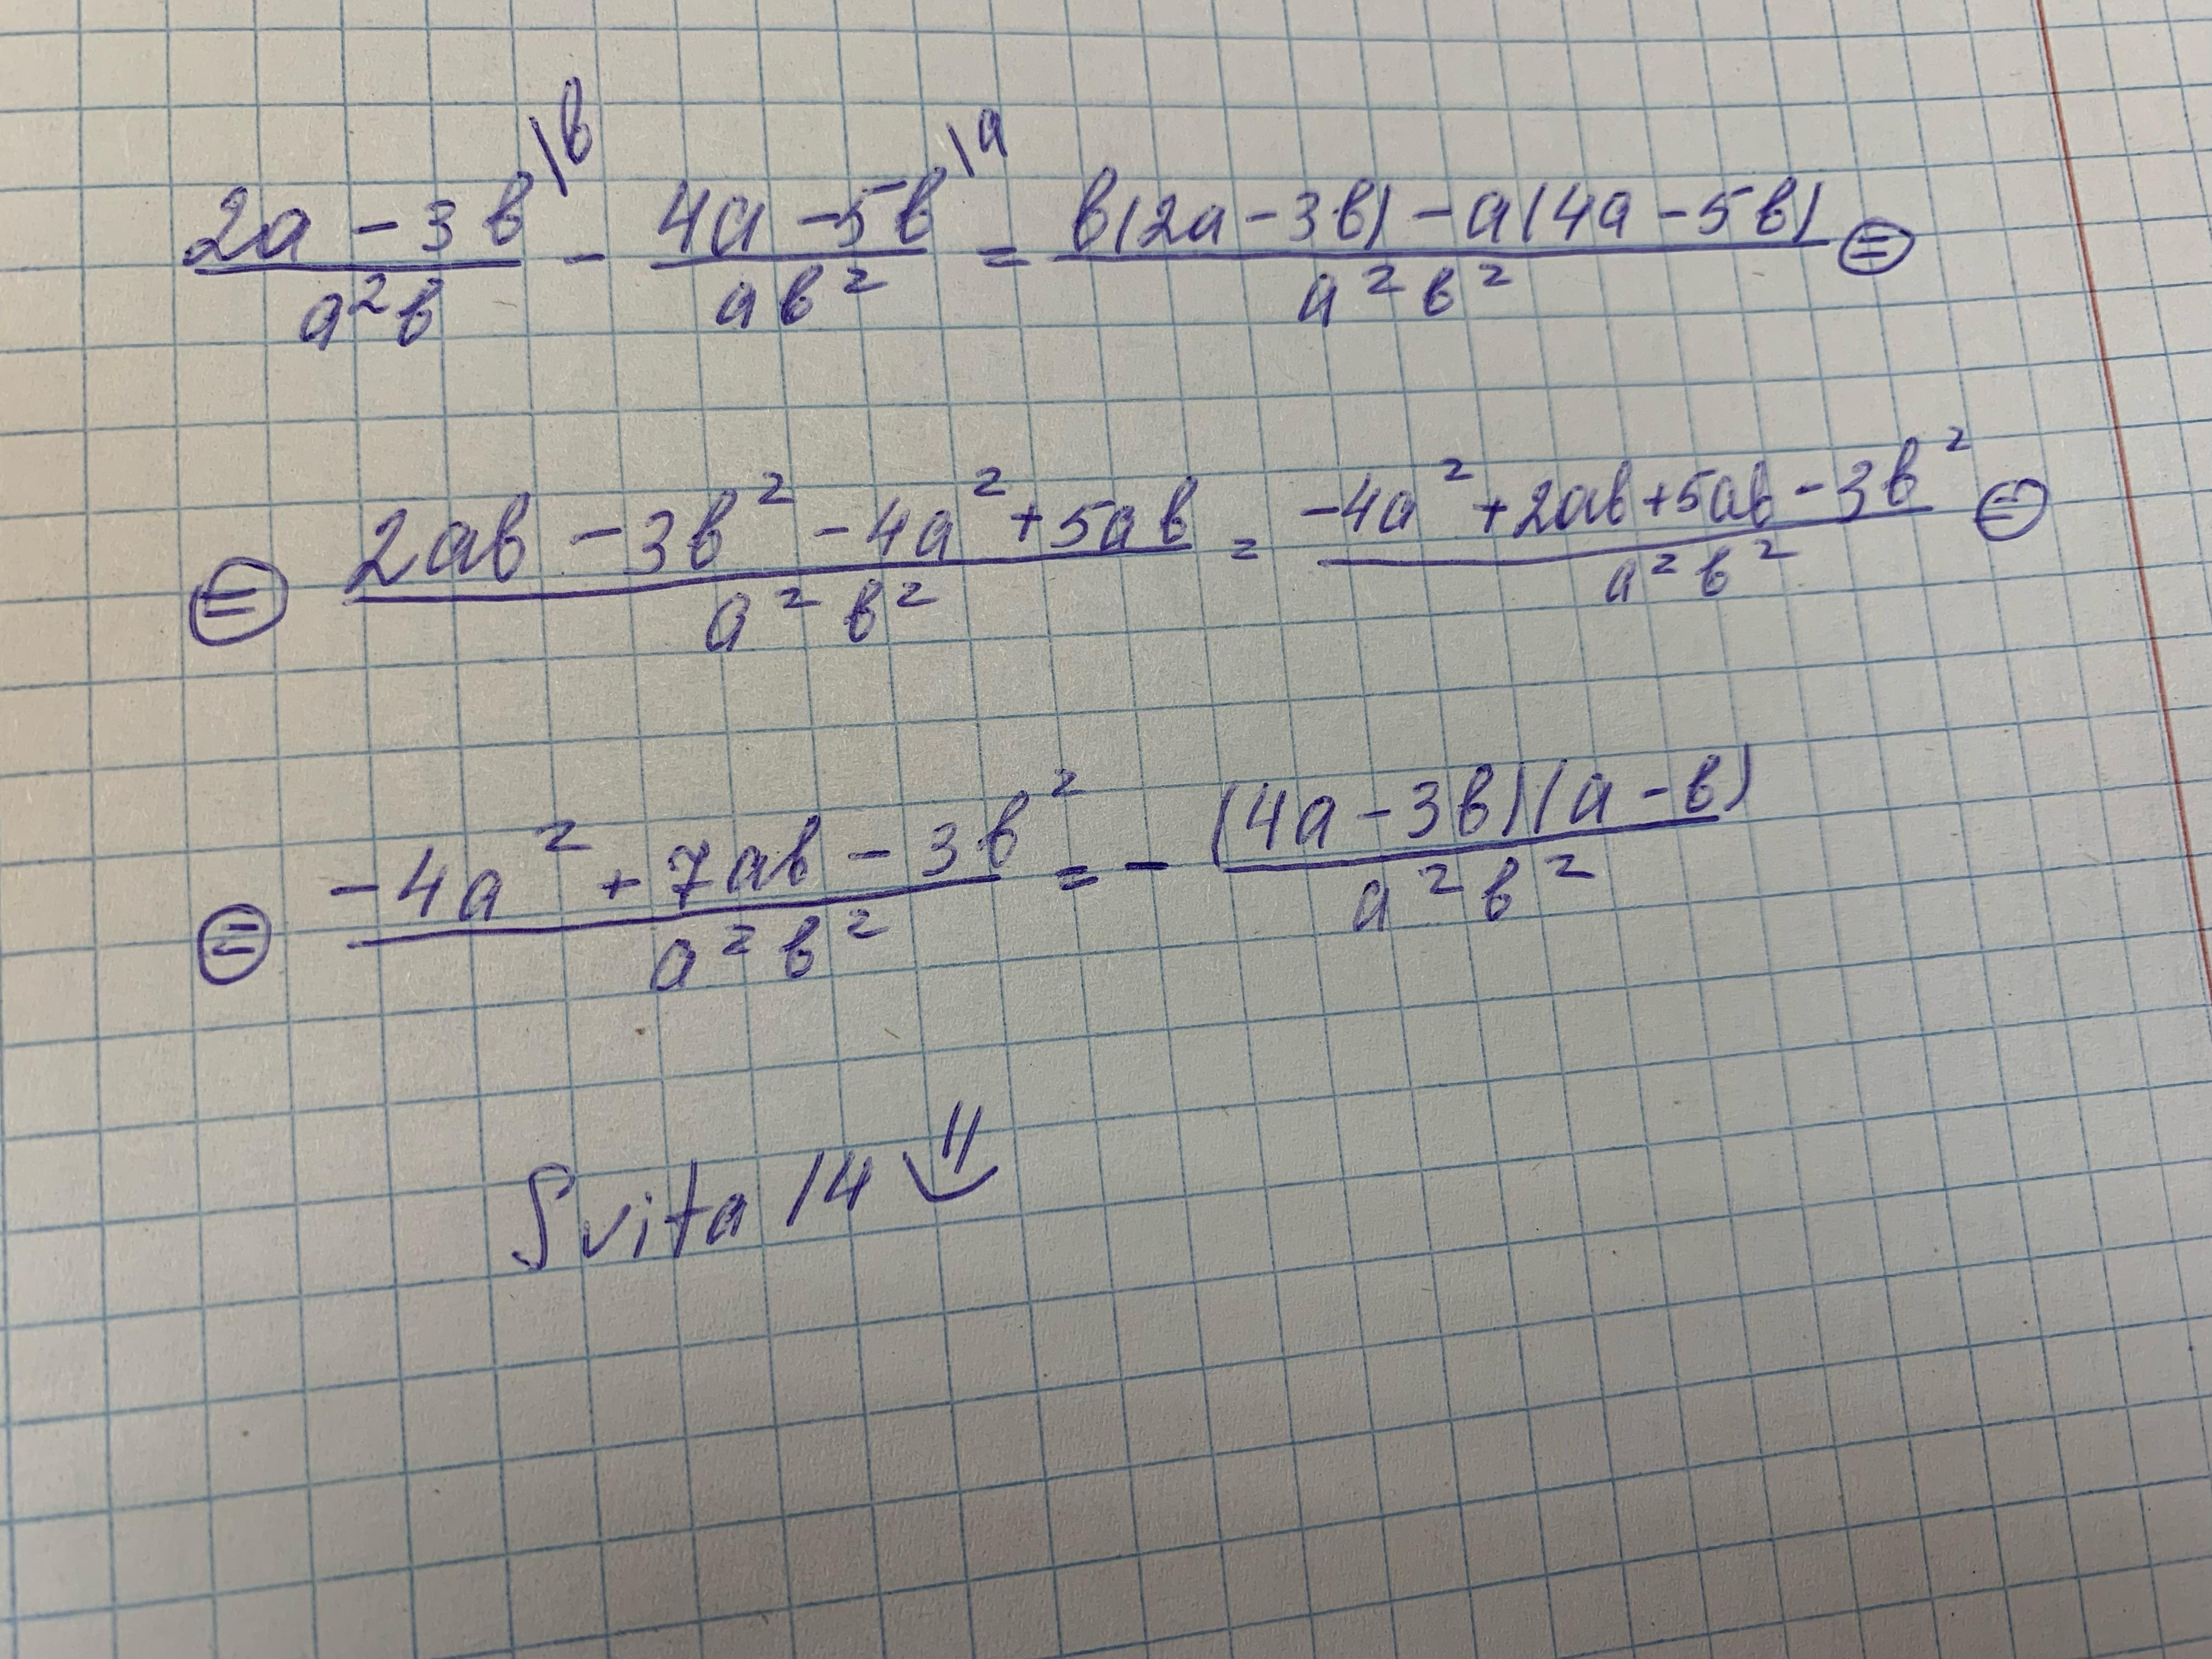 (2a - 3b)/(a²b) \b - (4a - 5b)/(ab²) \a = (b(2a - 3b) - a(4a - 5b))/(a²b²) =
= (2ab - 3b² - 4a² + 5ab)/(a²b²) = (-4a² + 2ab + 5ab - 3b²)/(a²b²) =
= (-4a² + 7ab - 3b²)/(a²b²) = - ((4a - 3b)(a - b))/(a²b²)
Svita 14